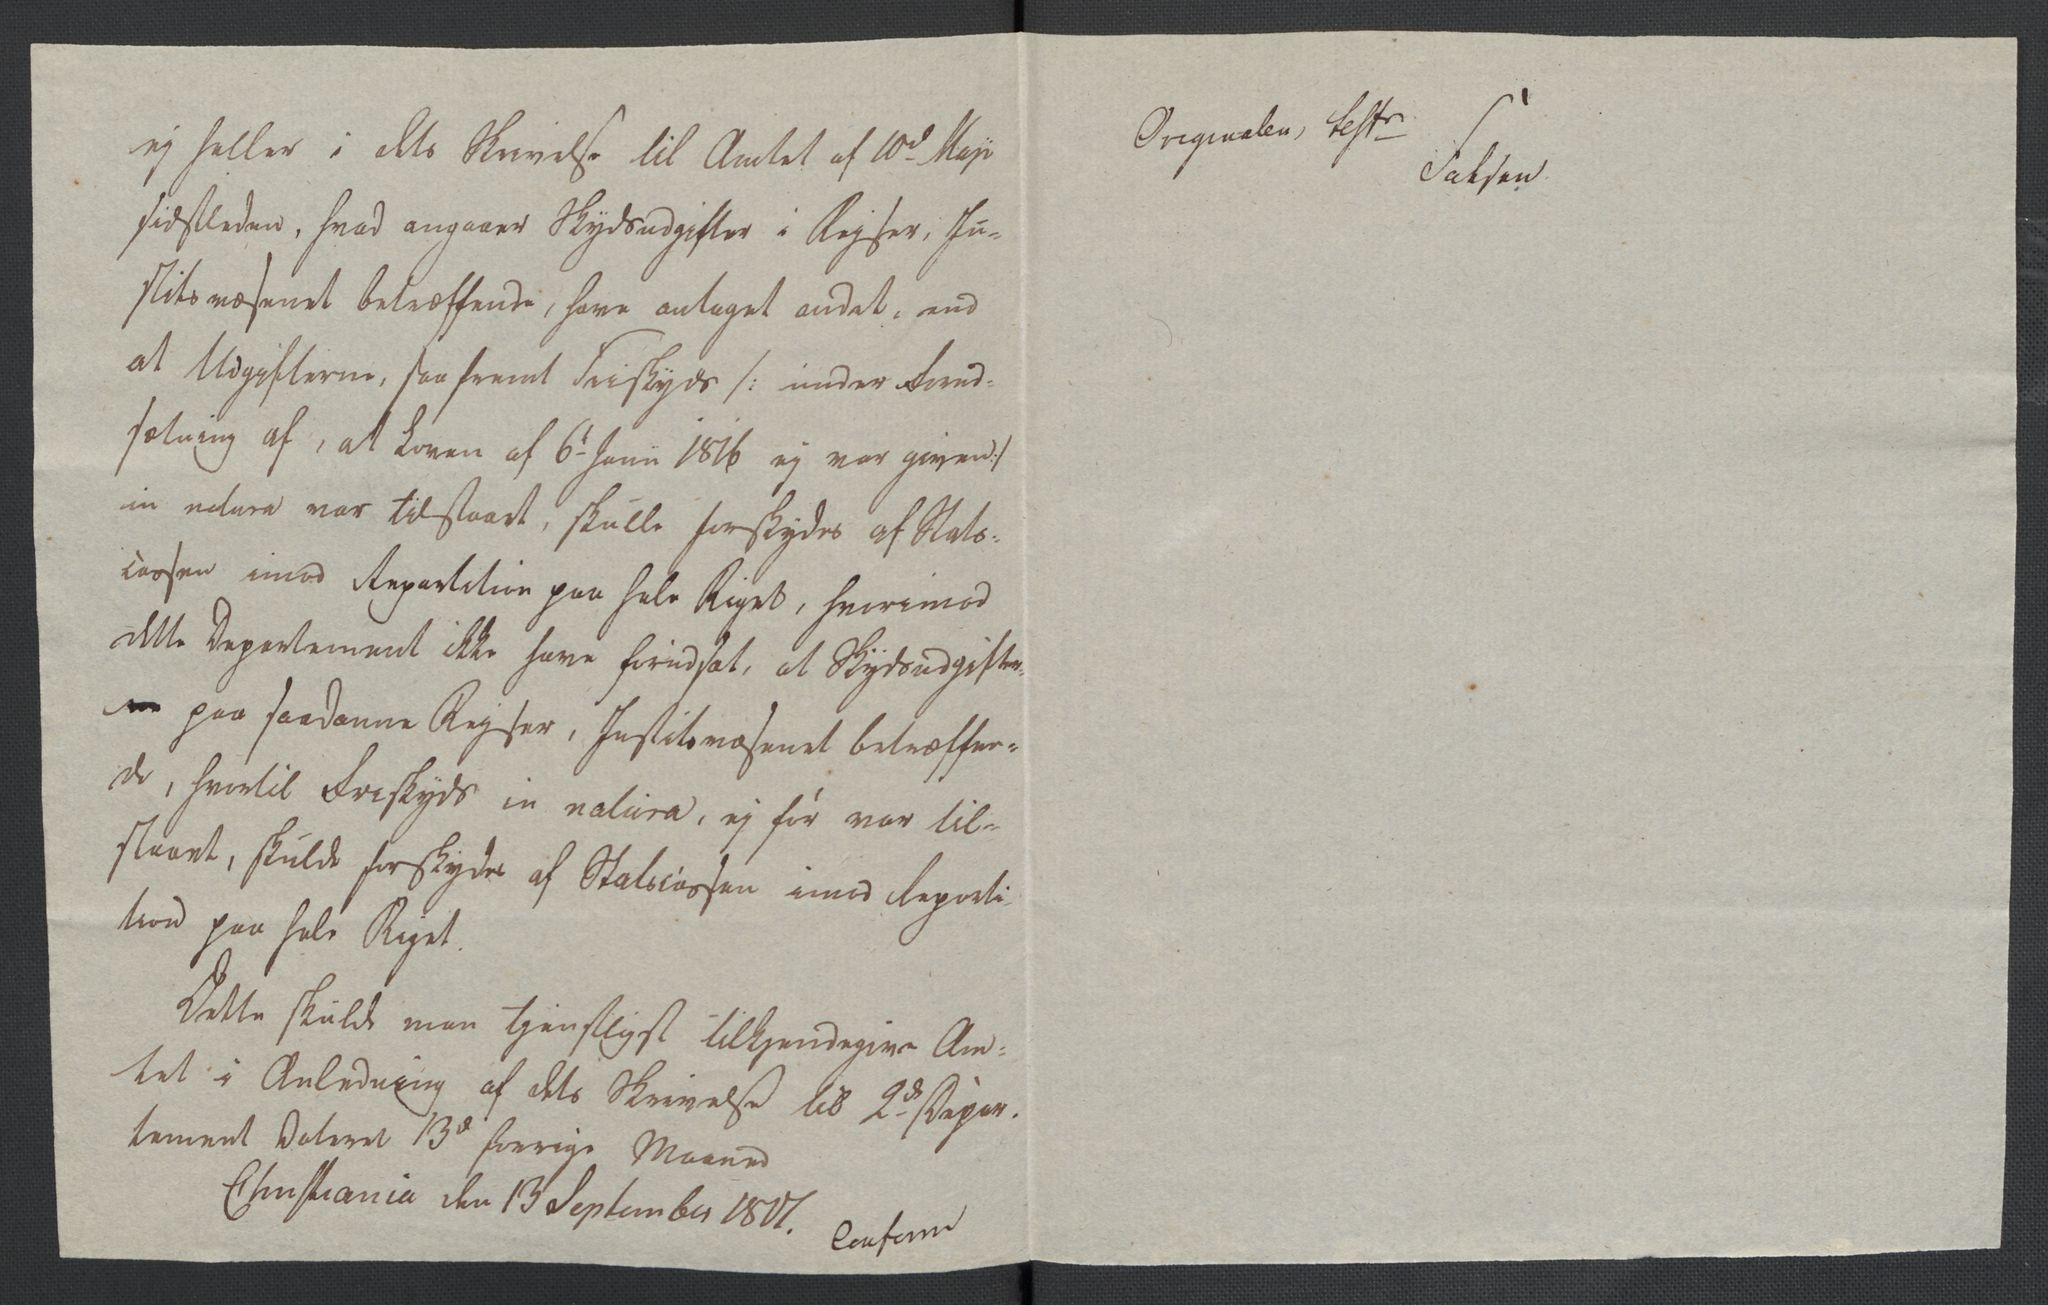 ej heller i dets Skrivelse til Amtet af 10d Maji
sidstleden, hvad angaaer Skydsudgifter i Rejser, Ju-
stitsvæsenet betræffende, have antaget andet, end
at Udgifterne, saafremt Friskyds /: under Forud-
sætning af, at Loven af 6t Junii 1816 ej var given :/
in natura var tilstaaet, skulle forskydes af Stats-
cassen imod Repartition paa hele Riget, hvorimod
dette Departement ikke have forudsat, at Skydsudgifter-
ne paa saadanne Rejser, Justitsvæsenet betræffen-
de, hvortil Friskyds in natura, ej før var til-
staaet, skulde forskydes af Statscassen imod Reparti-
tion paa hele Riget.
Dette skulde man tjenstligst tilkjendegive Am-
tet i Anledning af dets Skrivelse til 2det Depar-
tement dateret 13d forrige Maaned
Christiania den 13 September 1817.
Conform
Originalen, test
Falsen